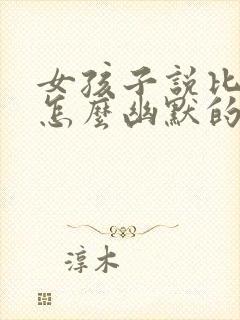 女孩子說比
怎麼幽默的
淳木